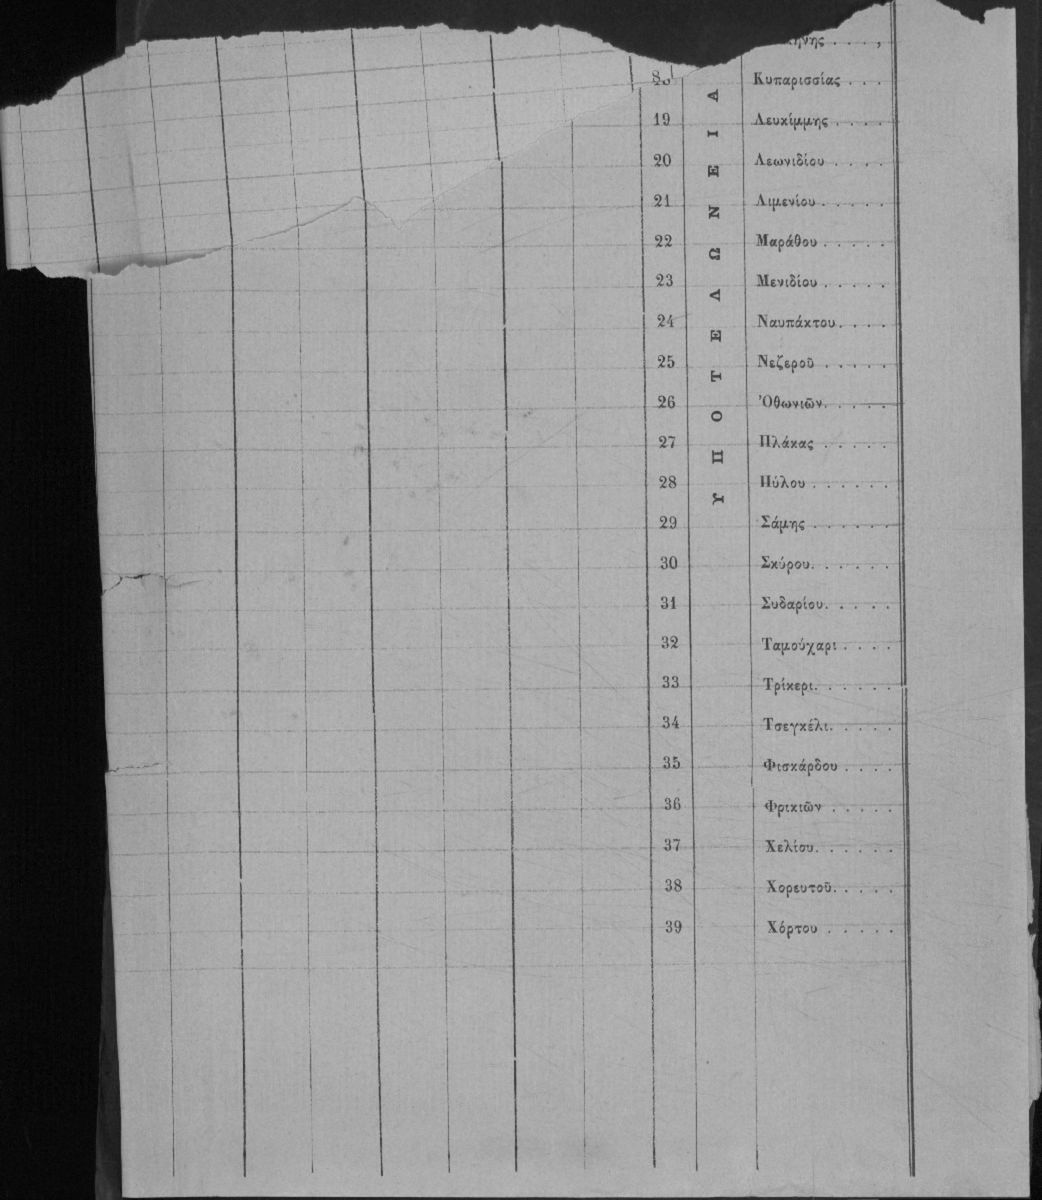 Κυπαρισσίας . . .
19 Λευκίμμης . . . .
20 Λεωνιδίου . . . .
21 Λιμενίου . . . . .
22 Μαράθου . . . . .
23 Μενιδίου . . . . .
24 Ναυπάκτου . . . .
25 Νεζεροῦ . . . . .
26 Ὀθωνιῶν . . . . .
27 Πλάκας . . . . .
28 Πύλου . . . . . .
29 Σάμης . . . . . .
30 Σκύρου . . . . . .
31 Συδαρίου . . . . .
32 Ταμούχαρι . . . .
33 Τρίκερι . . . . . .
34 Τσεγκέλι . . . . .
35 Φισκάρδου . . . .
36 Φρικιῶν . . . . .
37 Χελίου . . . . . .
38 Χορευτοῦ . . . . .
39 Χόρτου . . . . .
ΥΠΟΤΕΛΩΝΕΙΑ